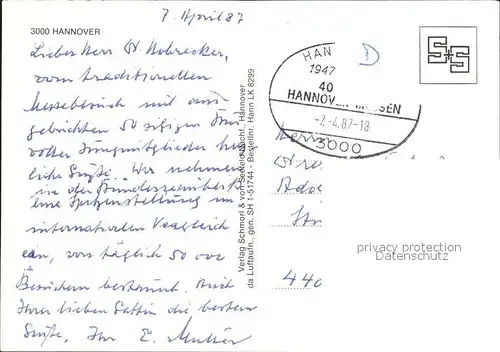 7. April 87
3000 HANNOVER
Lieber Herr Dr. Nobrecker,
vom traditionellen
Messebesuch mit aus-
gebuchten 50 sitzigen
voller Jungmitglieder herz-
liche Grüße. Wir nehmen
in der Bundesrepublik
eine Spitzenstellung im
internationalen Vergleich
ein, von täglich 50 000
Besuchern bestaunt. Auch
Ihrer lieben Gattin die besten
Grüße, Ihr E.
Verlag Schmorl & von Seefeld Nachf., Hannover
da Luftaufn., gen. SH 1-51744 - Bestellnr. Hann LK 8299
HAN
1947
40
HANNOV MESSEN
-7.-4.87-18
3000
D
Herrn
Adv
440
privacy protection
Datenschutz